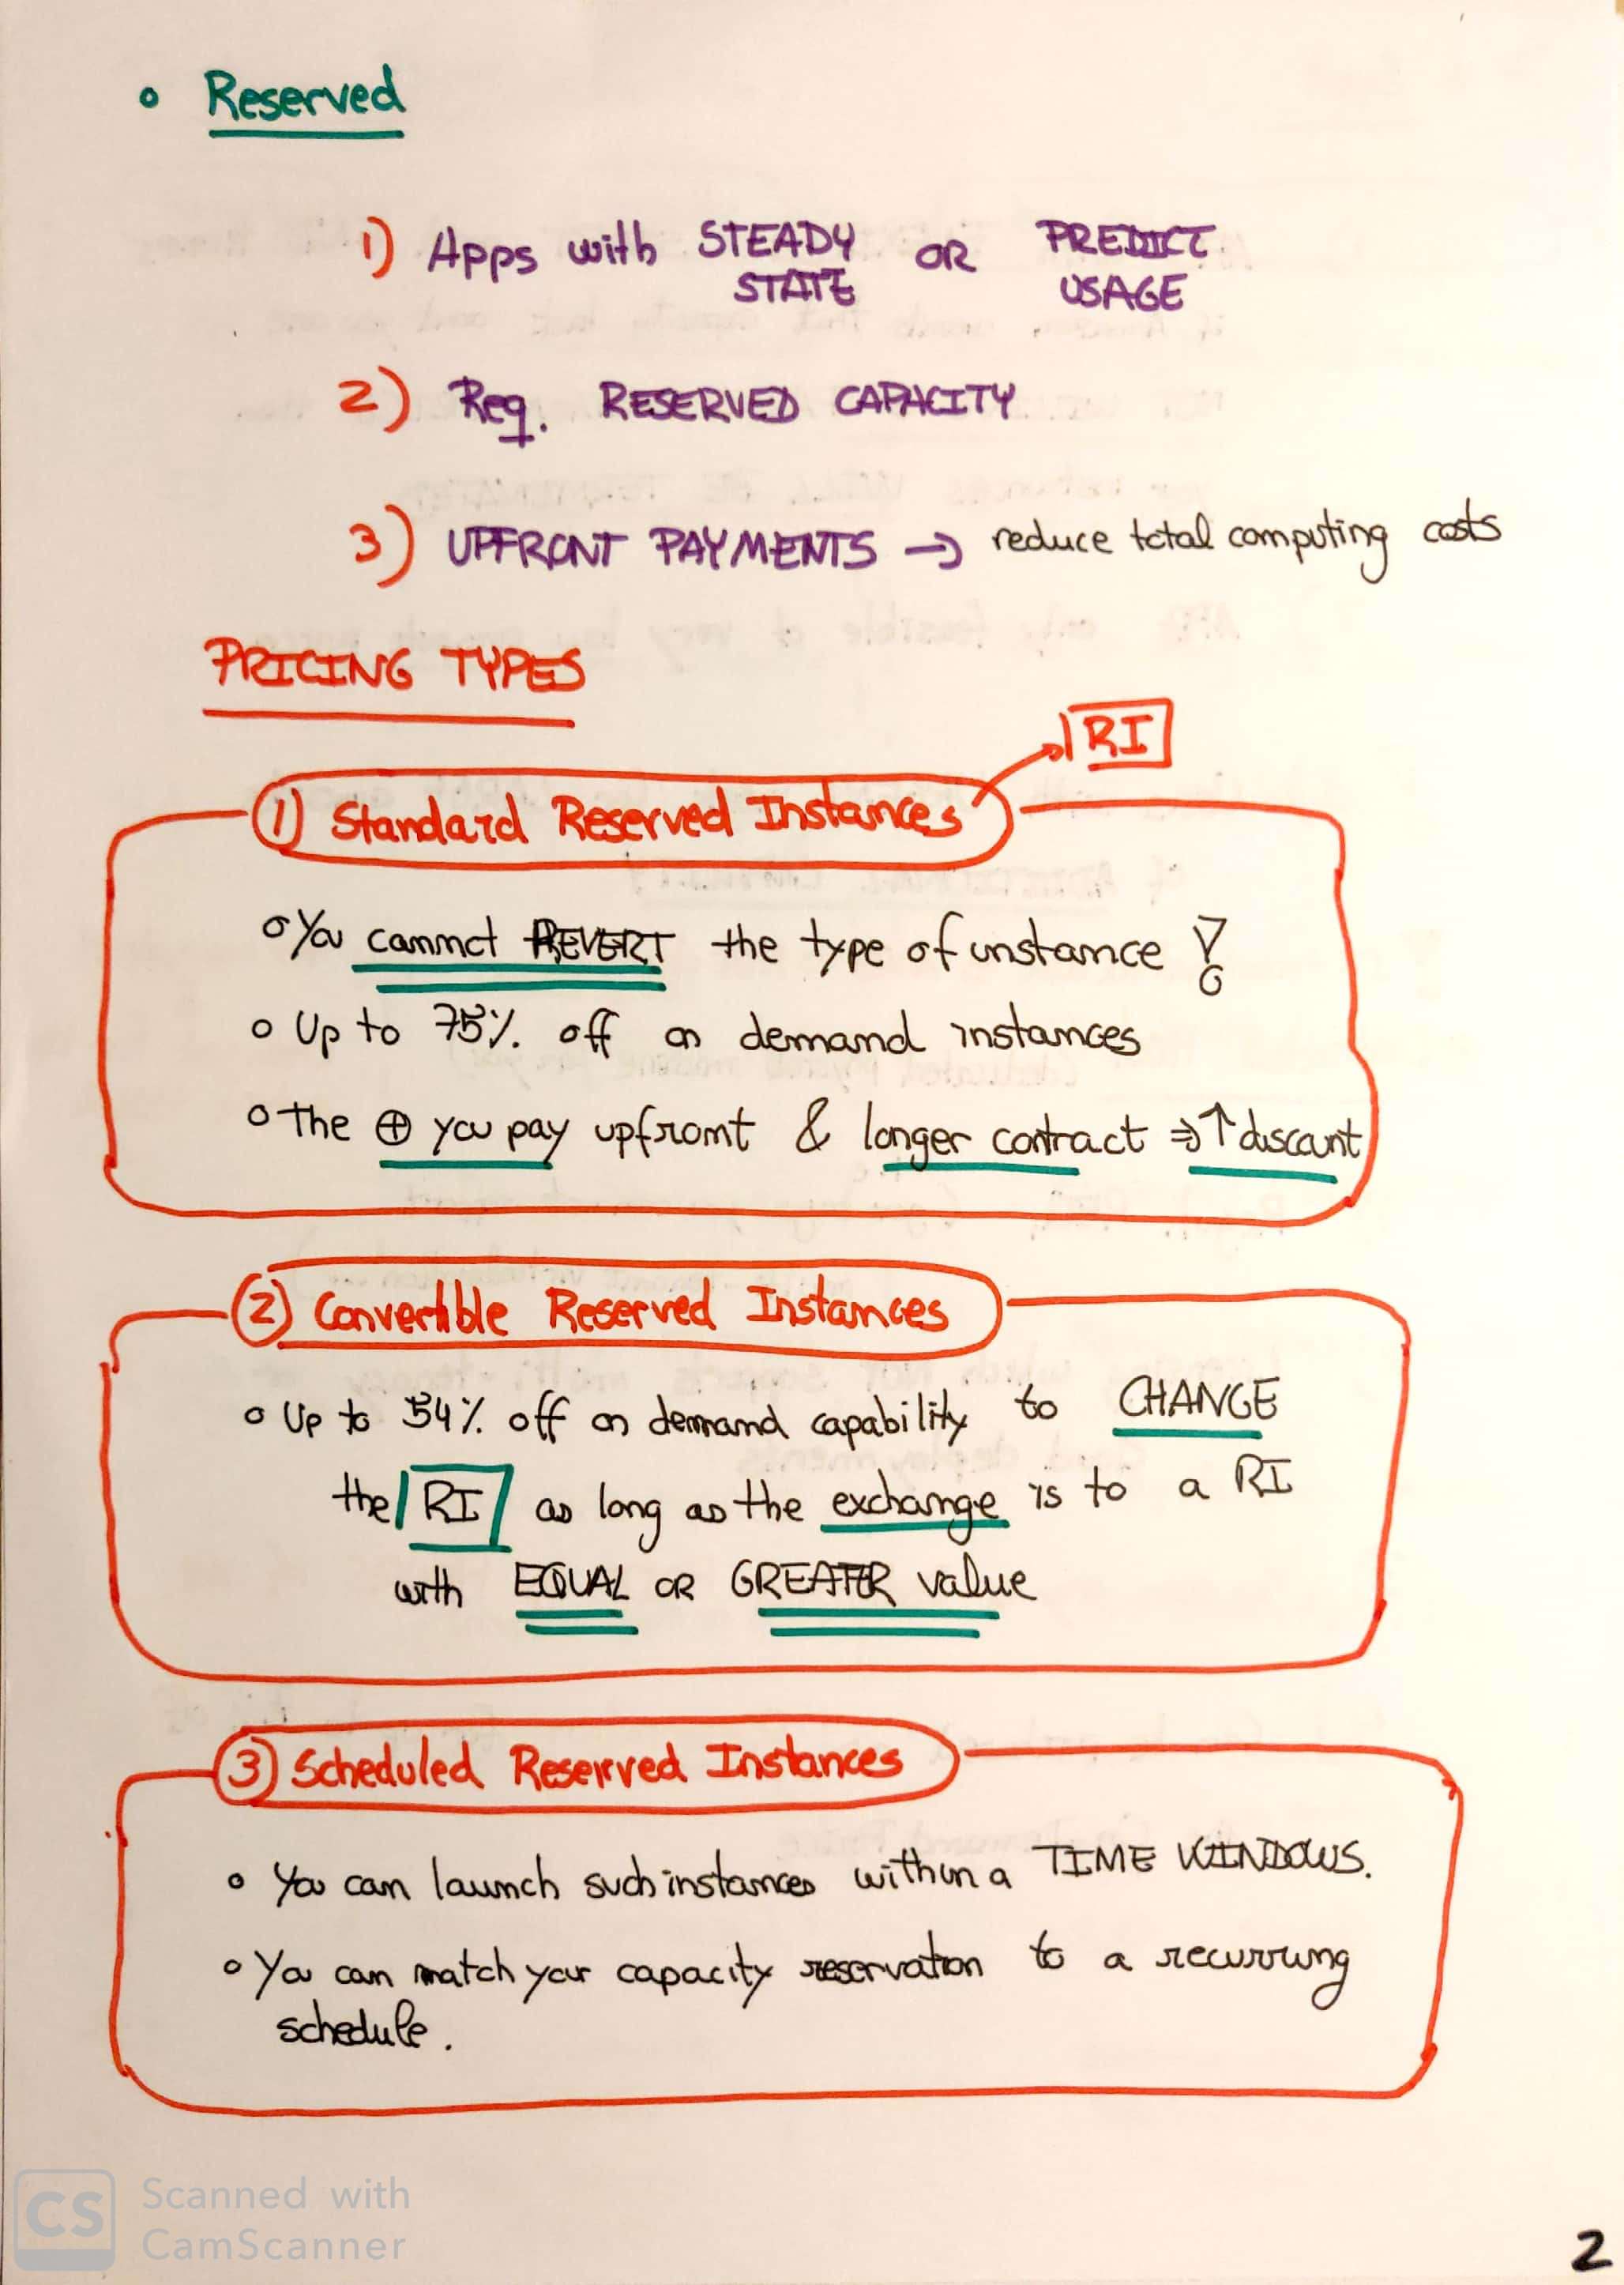 • Reserved
1) Apps with STEADY STATE OR PREDICT USAGE
2) Req. RESERVED CAPACITY
3) UPFRONT PAYMENTS → reduce total computing costs
PRICING TYPES
RI
1) Standard Reserved Instances
o You cannot REVERT the type of instance !
o Up to 75% off on demand instances
o The ⊕ you pay upfront & longer contract ⇒ ↑ discount
2) Convertible Reserved Instances
o Up to 54% off on demand capability to CHANGE
the RI as long as the exchange is to a RI
with EQUAL OR GREATER value
3) Scheduled Reserved Instances
o You can launch such instances within a TIME WINDOWS.
o You can match your capacity reservation to a recurring
schedule.
CS Scanned with
CamScanner
2